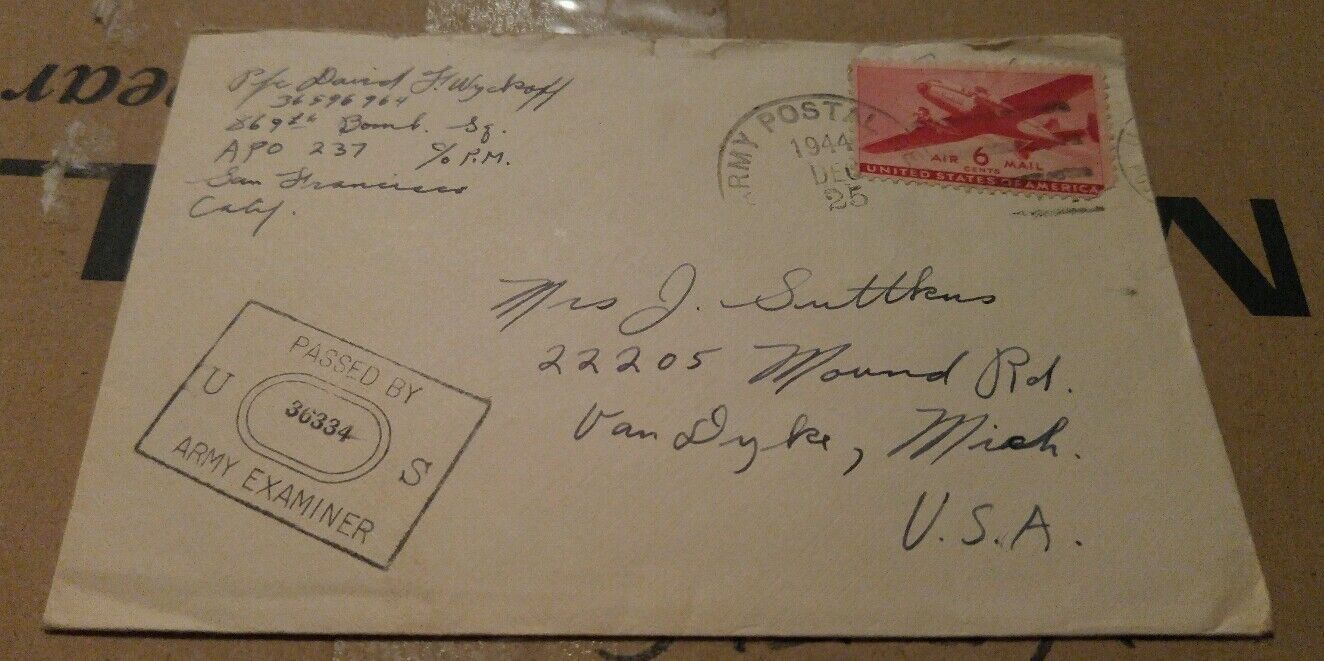 Pfc David F. Wyckoff
36596964
869th Bomb. Sq.
APO 237 c/o P.M.
San Francisco
Calif.
ARMY POSTAL
1944
DEC
25
AIR 6 MAIL
CENTS
UNITED STATES OF AMERICA
Mrs J. Suttkus
22205 Mound Rd.
Van Dyke, Mich.
U.S.A.
PASSED BY
U 36334 S
ARMY EXAMINER